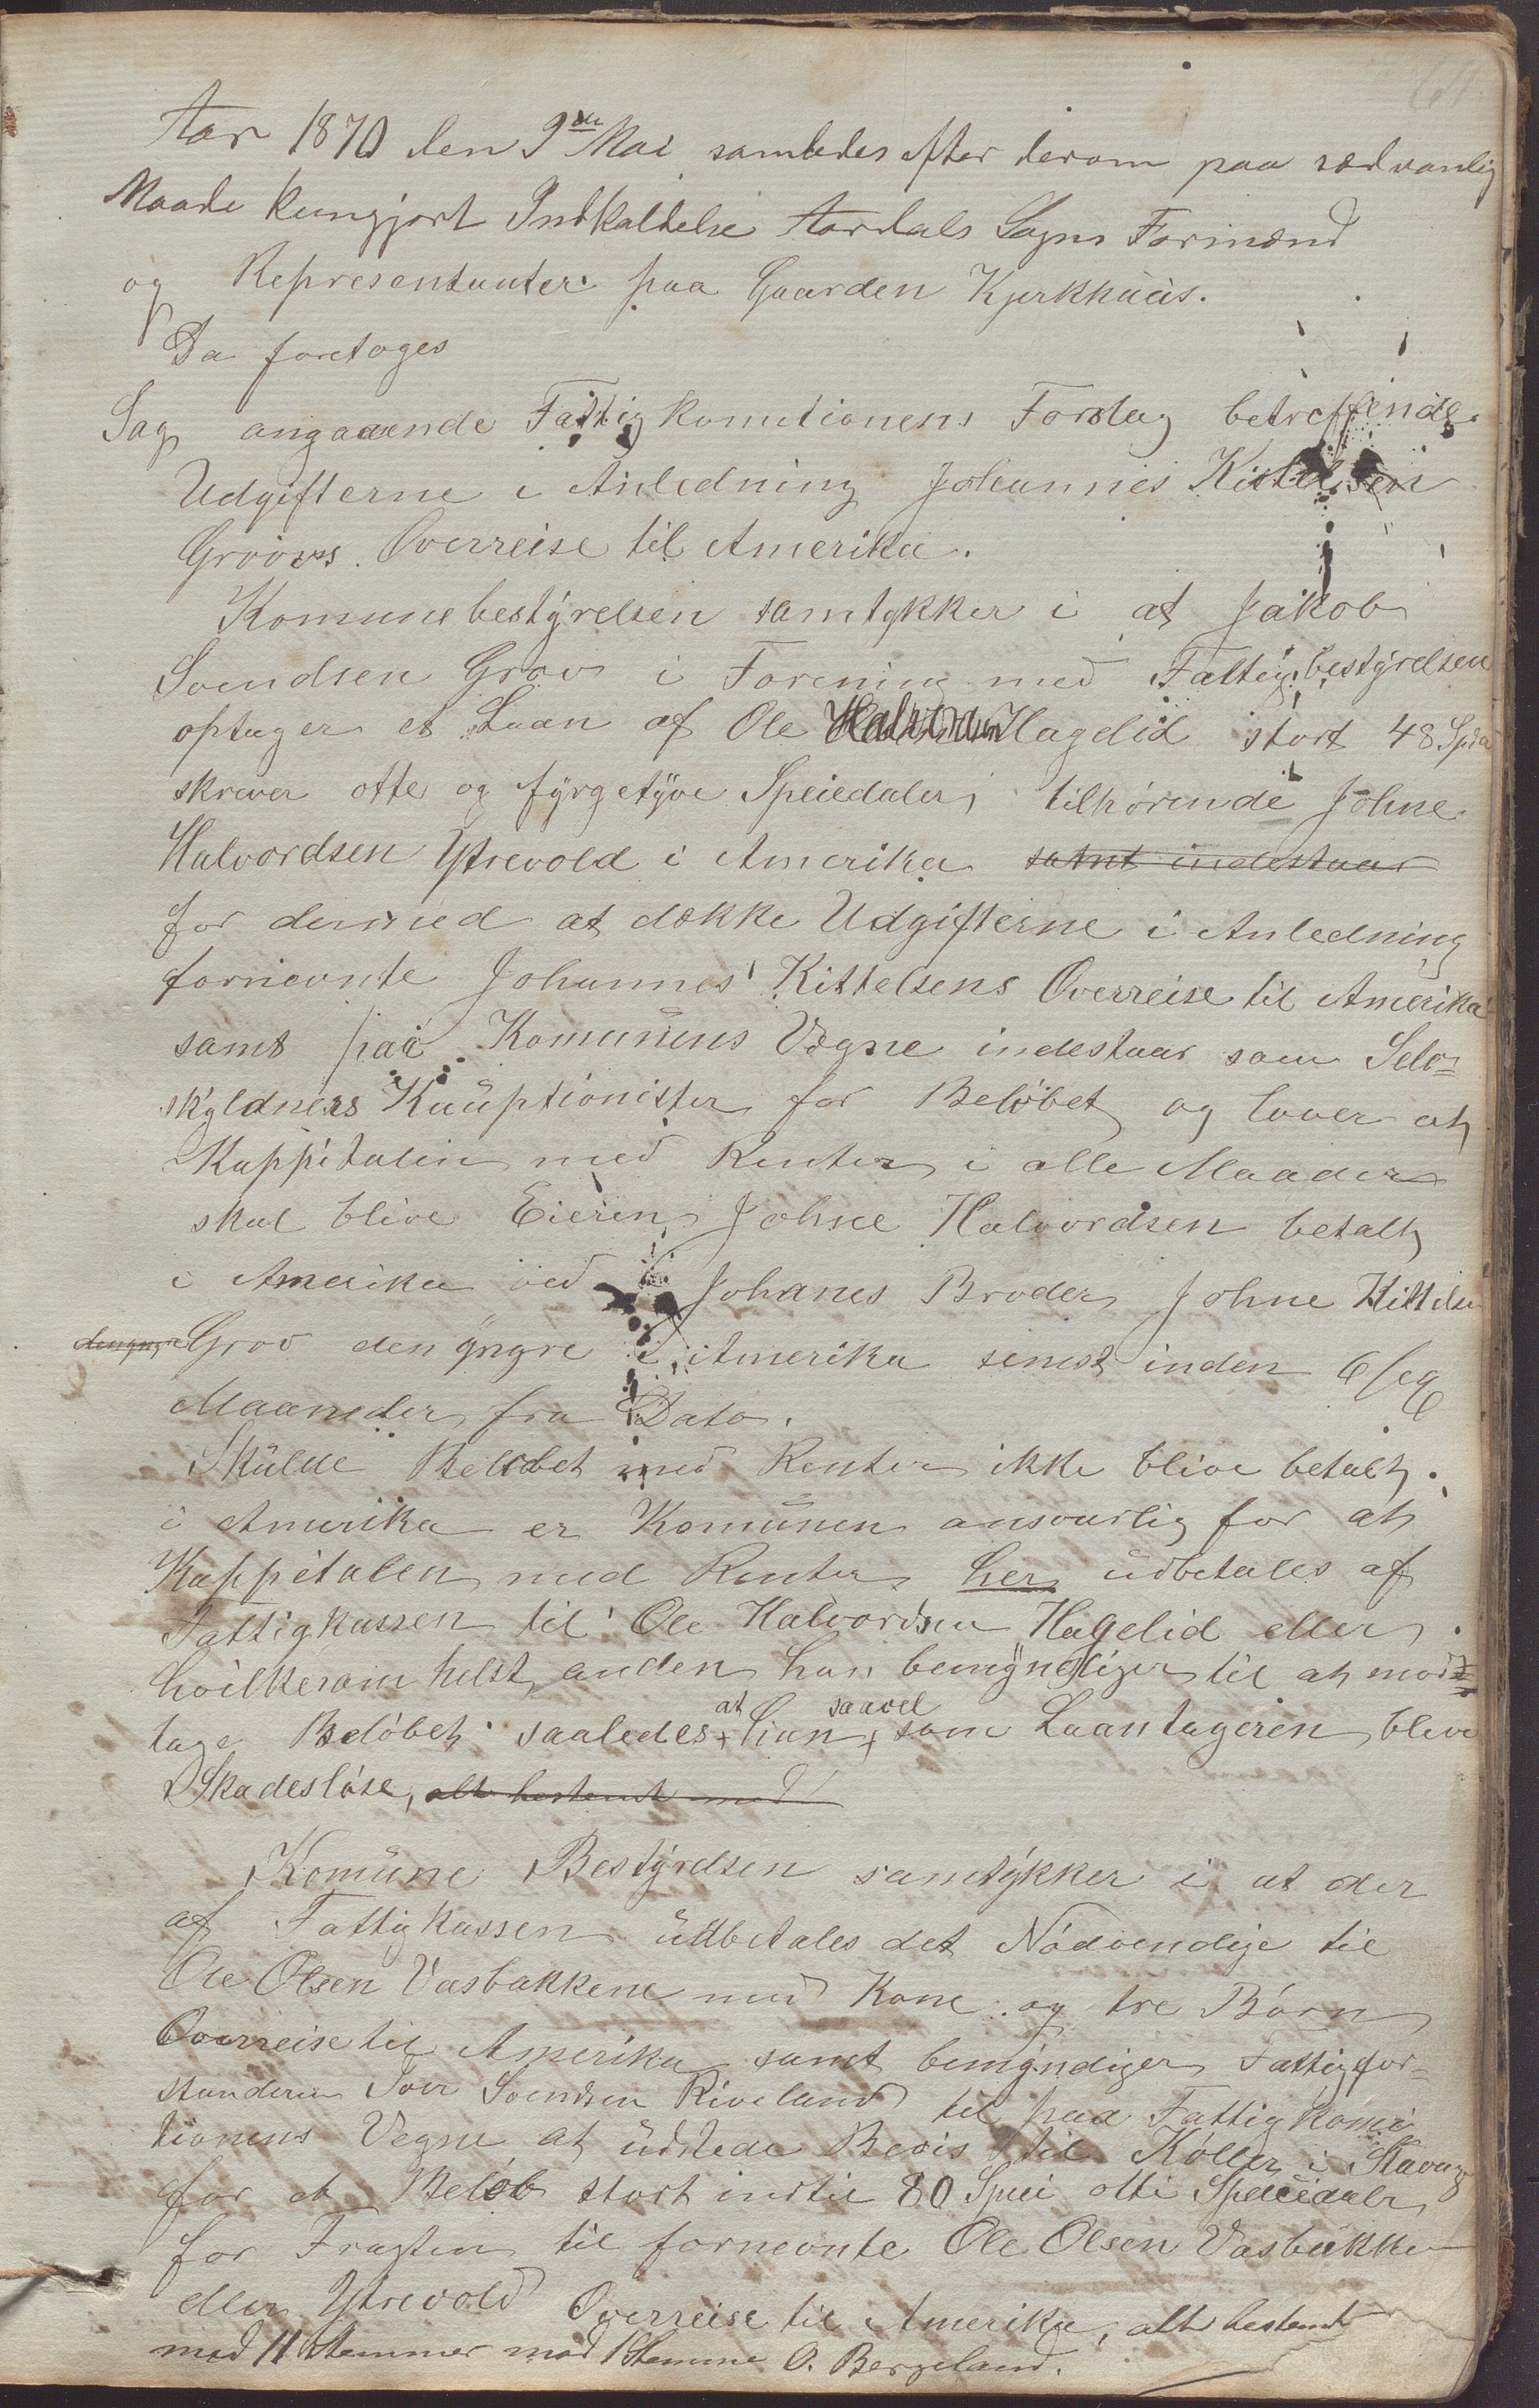 Aar 1870 den 9de Mai samledes efter derom paa sædvanlig
Maade kungjort Indkaldelse Aardals Sogns Formænd
og Representanter paa Gaarden Kjerkhuus.
Da foretoges
Sag angaaende Fattigkomitionens Forslag betreffende
Udgifterne i Anledning Johannes Kittelsen
Groovs Overreise til Amerika.
Komunebestyrelsen samtykker i at Jakob
Svendsen Grov i Forening med Fattigbestyrelsen
optager et Laan af Ole Halvordsen Hagelid stort 48 Spd
skrever otte og fyrgetyve Speiedaler, tilhørende Johne
Halvordsen Ytrevold i Amerika samt indestaar
for dermed at dække Udgifterne i Anledning
fornevnte Johannes Kittelsens Overreise til Amerika
samt paa Komunens Vegne indestaar som Selv=
skyldners Kauptionister for Beløbet og lover at
Kappitalen med Renter i alle Maader
skal blive Eieren Johne Halvordsen betalt
i Amerika ved Johanes Broder Johne Kittelsen
den yngre Grov den yngre i Amerika senest inden 6 seg
Maaneder fra Dato.
Skulde Beløbet med Renter ikke blive betalt
i Amerika er Komunen ansvarlig for at
Kappitalen med Renter her udbetales af
Fattigkassen til Ole Halvordsen Hagelid eller
hvilkesom helst anden han bemyndiger til at mod=
tage Beløbet saaledes at han saavel som Laantageren blive
Skadesløse, alt bestemt med
Komune Bestyrelsen samtykker i at der
af Fattigkassen udbetales det Nødvendige til
Ole Olsen Vasbakkene med Kone og tre Børn
Overreise til Amerika samt bemyndiger Fattigfor=
standeren Iver Svendsen Riveland til paa Fattigkomi
tionens Vegne at udstede Bevis til Køller i Stavang
for et Beløb stort indtil 80 Spei otti Speciedaler
for Fragten til fornevnte Ole Olsen Vasbakke
eller Ytrevold Overreise til Amerika, alt bestemt
med 11 Stemmer mod 1 Stemme O. Bergeland.